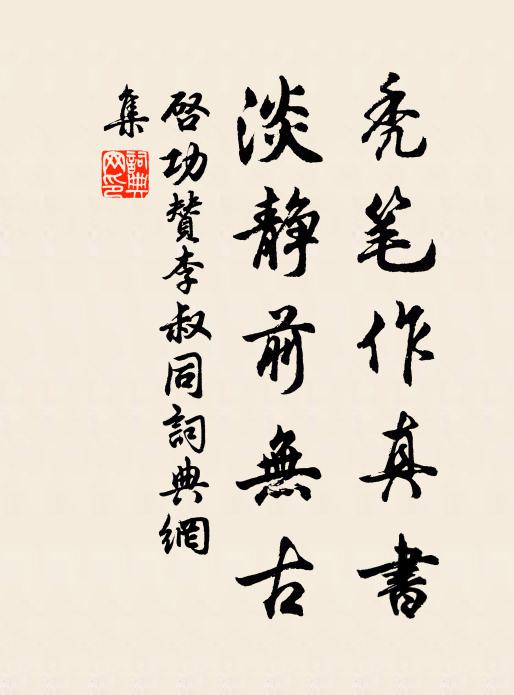 秃笔作真書
淡静前無古
啓功贊李叔同詞典網
集
詞典网印